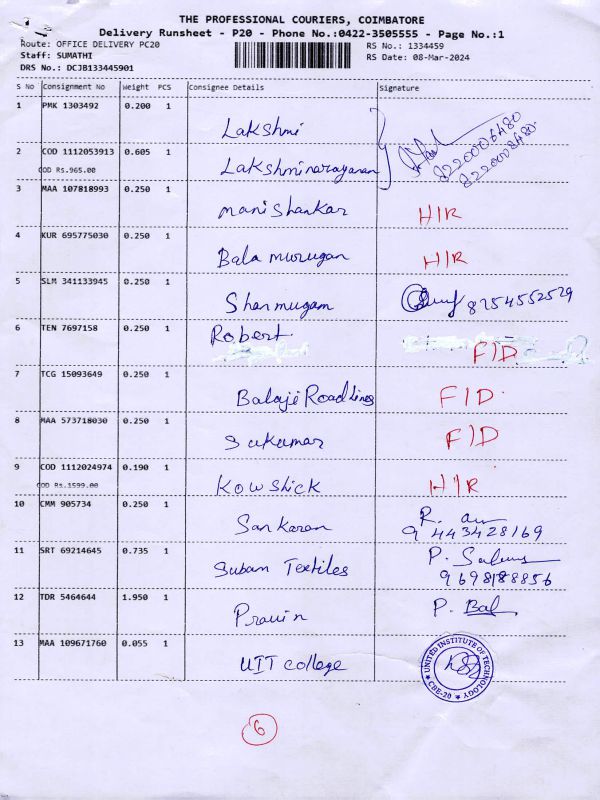 THE PROFESSIONAL COURIERS, COIMBATORE
Delivery Runsheet - P20 - Phone No.:0422-3505555 - Page No.:1
Route: OFFICE DELIVERY PC20 RS No.: 1334459
Staff: SUMATHI RS Date: 08-Mar-2024
DRS No.: DCJB133445901
S No Consignment No Weight PCS Consignee Details Signature
1 PMK 1303492 0.200 1
Lakshmi
8220006480
2 COD 1112053913 0.605 1
COD Rs.965.00 Lakshminarayanan 8220008480
3 MAA 107818993 0.250 1
manishankar H/R
4 KUR 695775030 0.250 1
Bala murugan H/R
5 SLM 341133945 0.250 1
Shanmugam 8254552529
6 TEN 7697158 0.250 1 Robert
F/D
7 TCG 15093649 0.250 1
Balaji RoadLines F/D
8 MAA 573718030 0.250 1
Sukumar F/D
9 COD 1112024974 0.190 1
COD Rs.1599.00 Kowshick H/R
10 CMM 905734 0.250 1
Sankaran R.
9443428169
11 SRT 69214645 0.735 1
Subam Textiles P.
9698188856
12 TDR 5464644 1.950 1
Pravin P. Bal
13 MAA 109671760 0.055 1
UIT college
UNITED INSTITUTE OF TECHNOLOGY
CBE-20
6